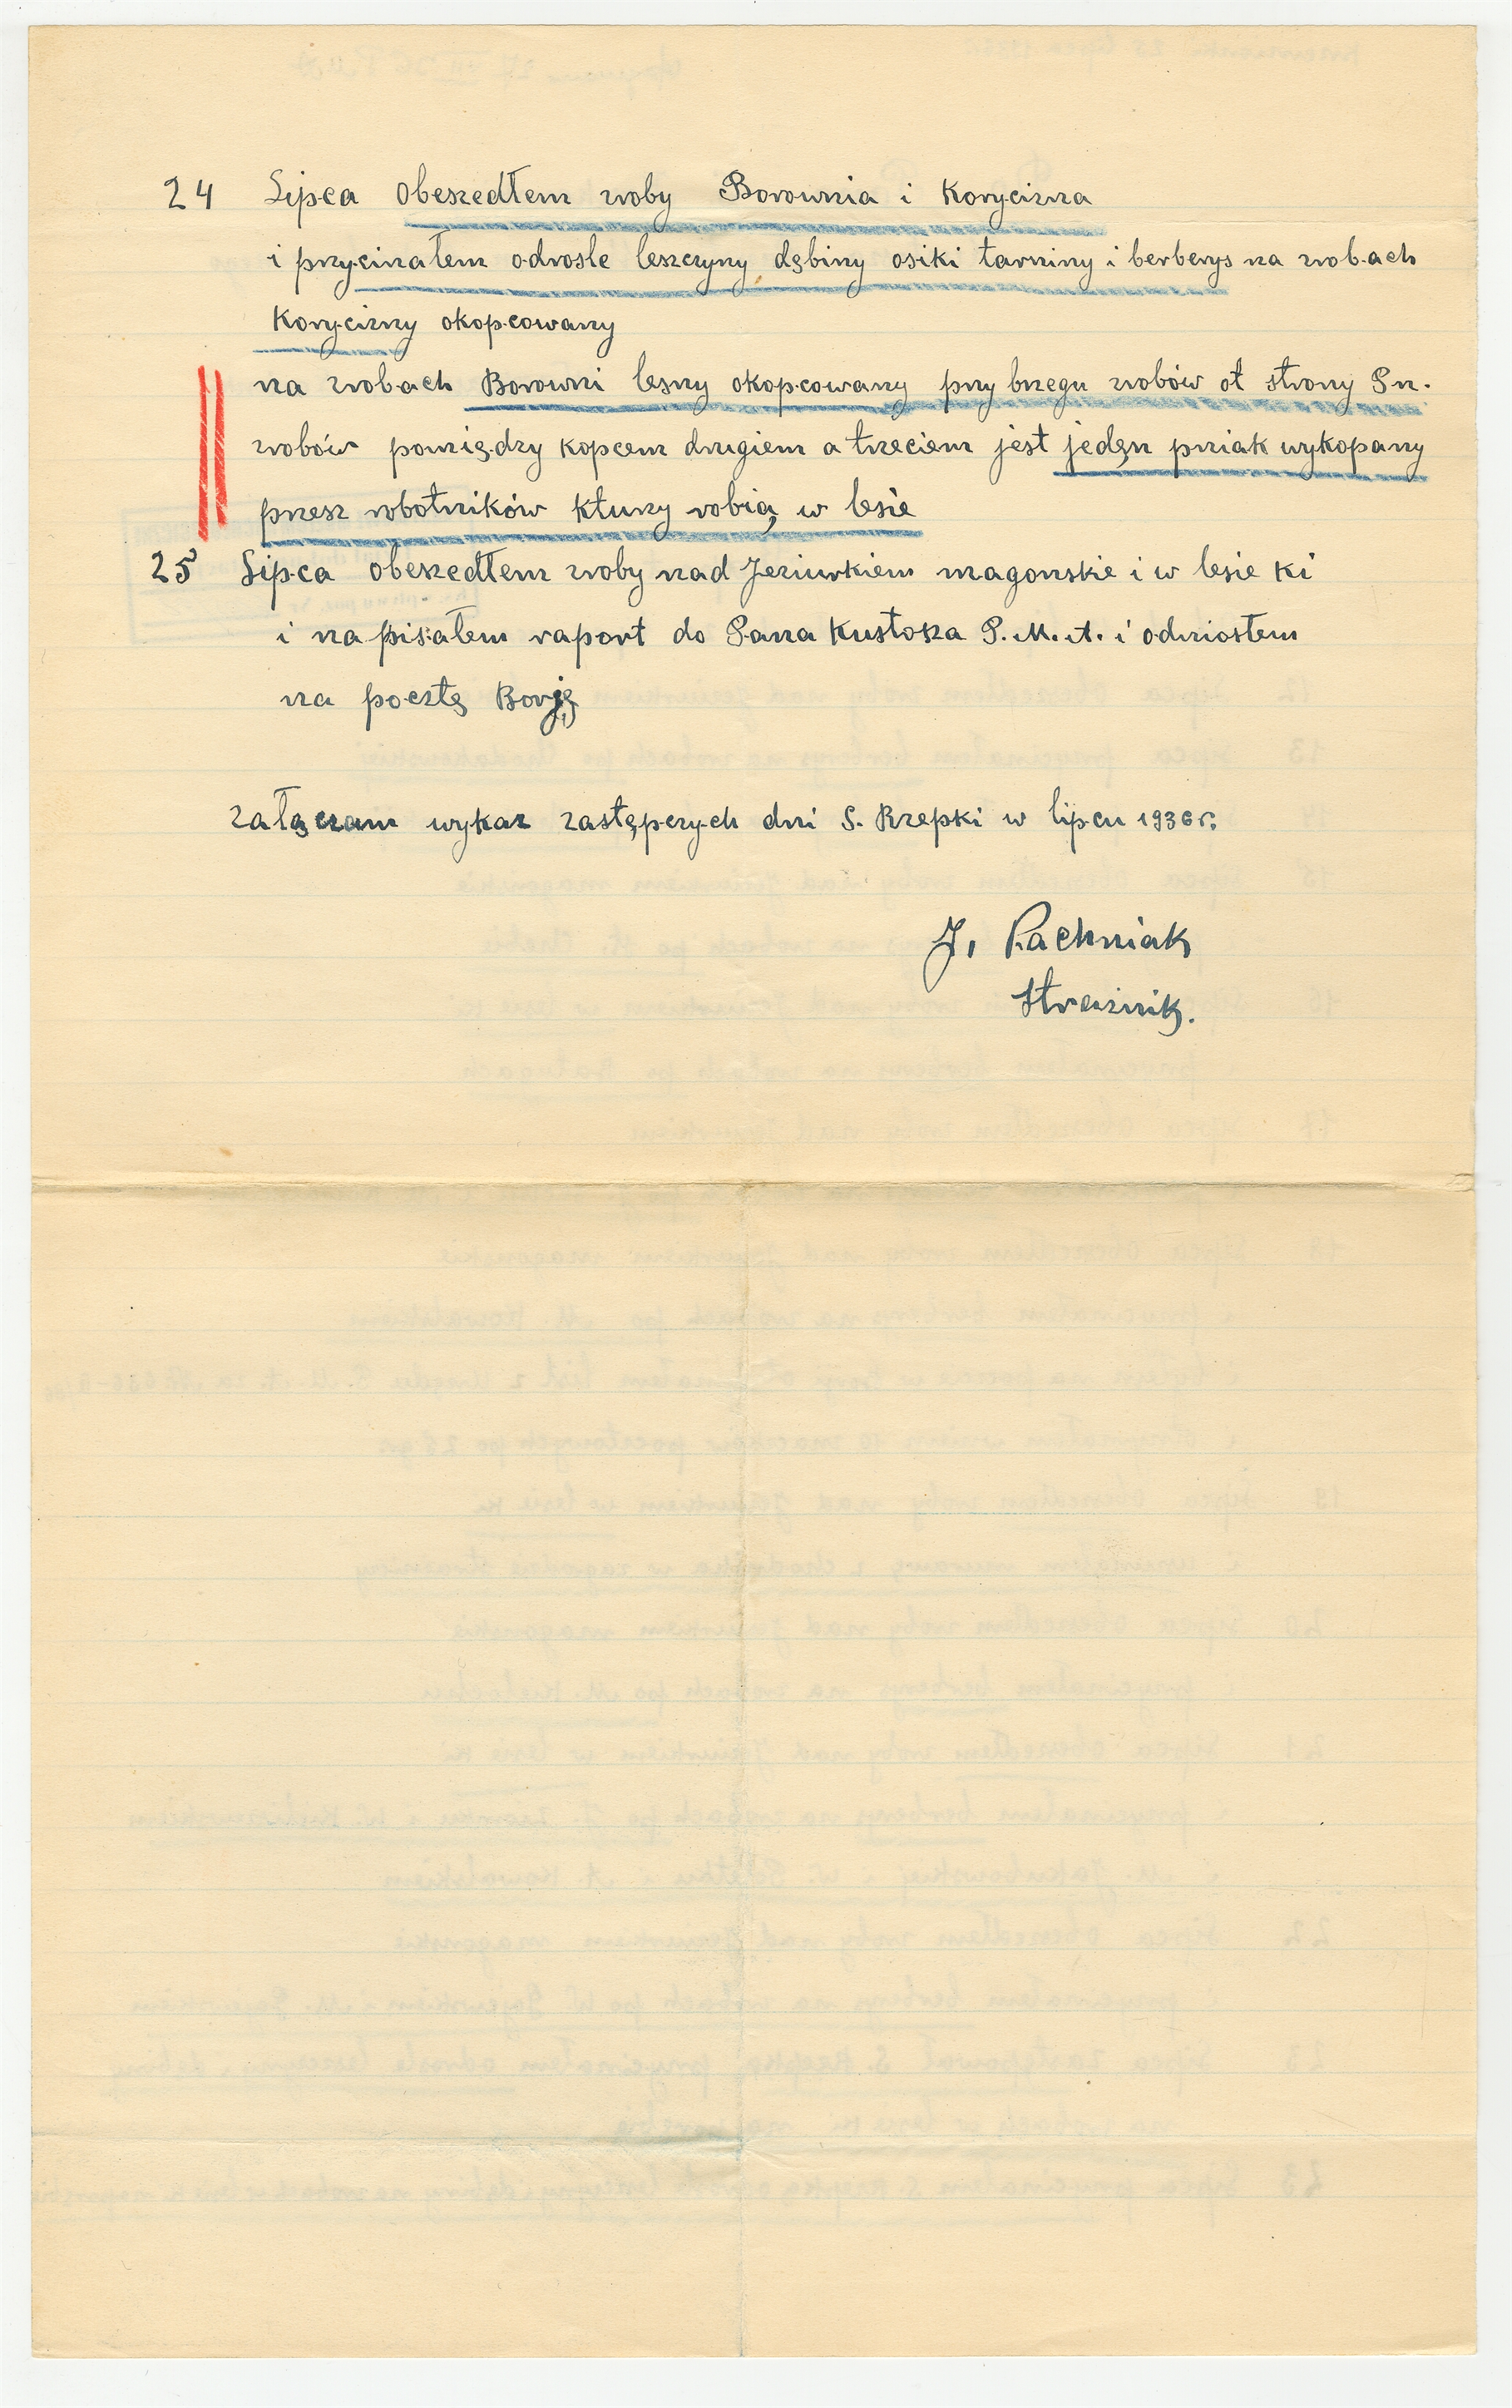 24 Lipca obeszedłem zroby Borownia i Korycizna
i przycinałem odrosle leszczyny dębiny osiki tarniny i berberys na zrobach
Korycizny okopcowany
na zrobach Borowni lesny okopcowany przy brzegu zrobów ot strony Pn.
zrobów pomiędzy kopcem drugiem a trzeciem jest jedęn pniak wykopany
przesz robotników ktury robią w lesie
25 Lipca obeszedłem zroby nad Jeziurkiem magonskie i w lesie ki
i napisałem raport do Pana Kustosza P.M.A. i odniosłem
na pocztę Borję
załączam wykaz zastępczych dni S. Rzepki w lipcu 1936 r.
J. Pachniak
Strażnik.